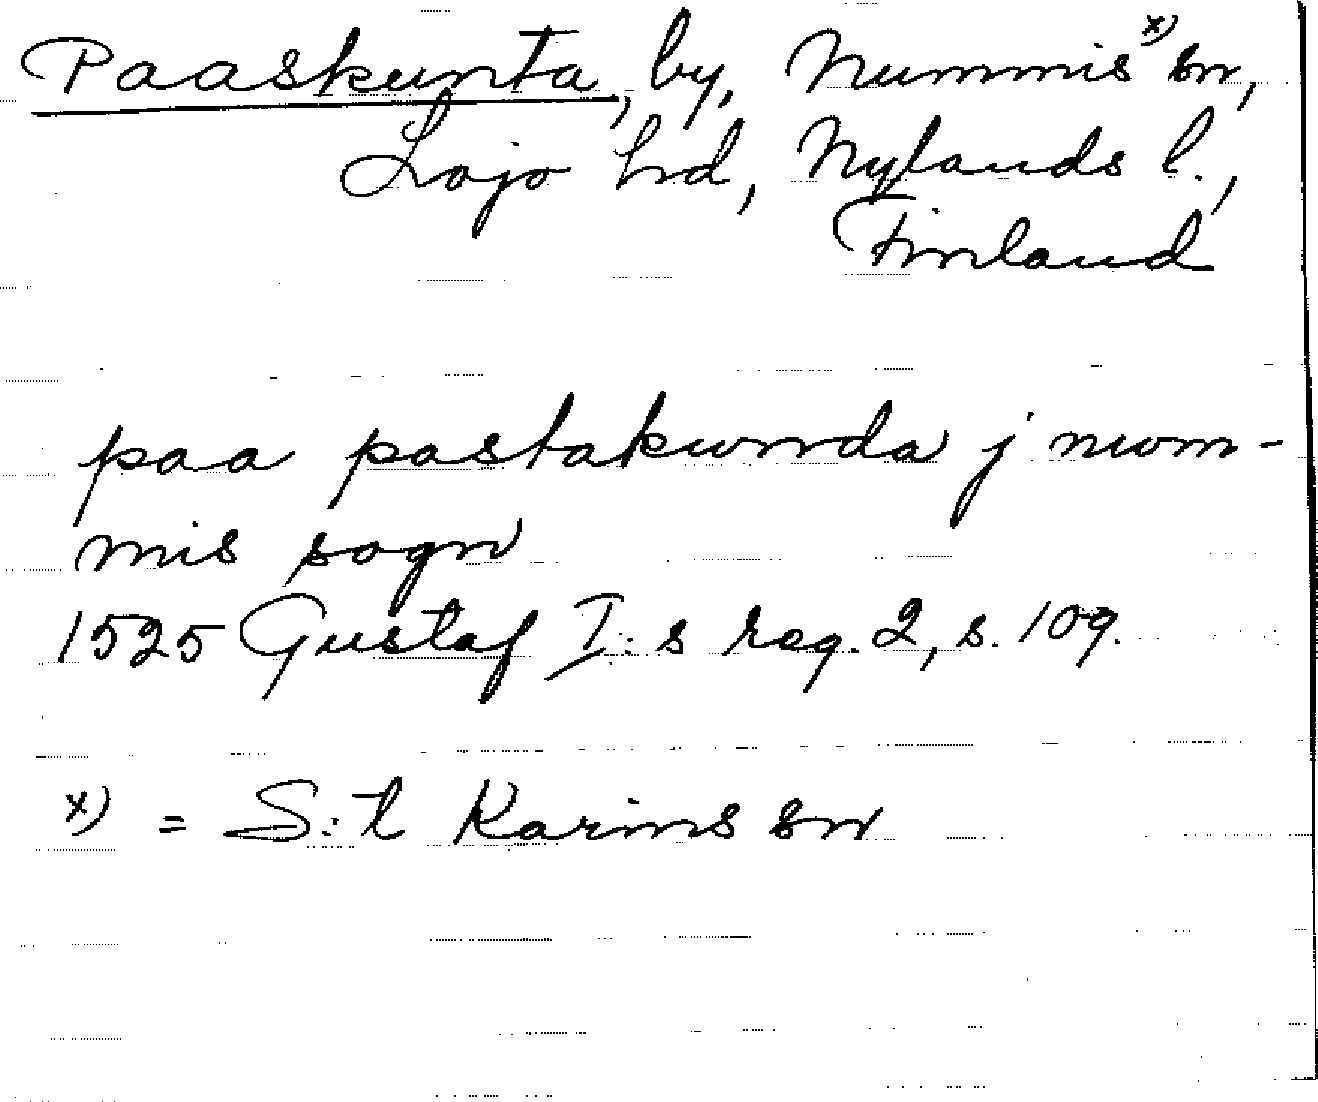 Paaskunta, by, Nummis x) sn,
Lojo hd, Nylands l.,
Finland
paa pastakunda j nwm-
mis sogn
1525 Gustaf I:s reg. 2, s. 109.
x) = S:t Karins sn